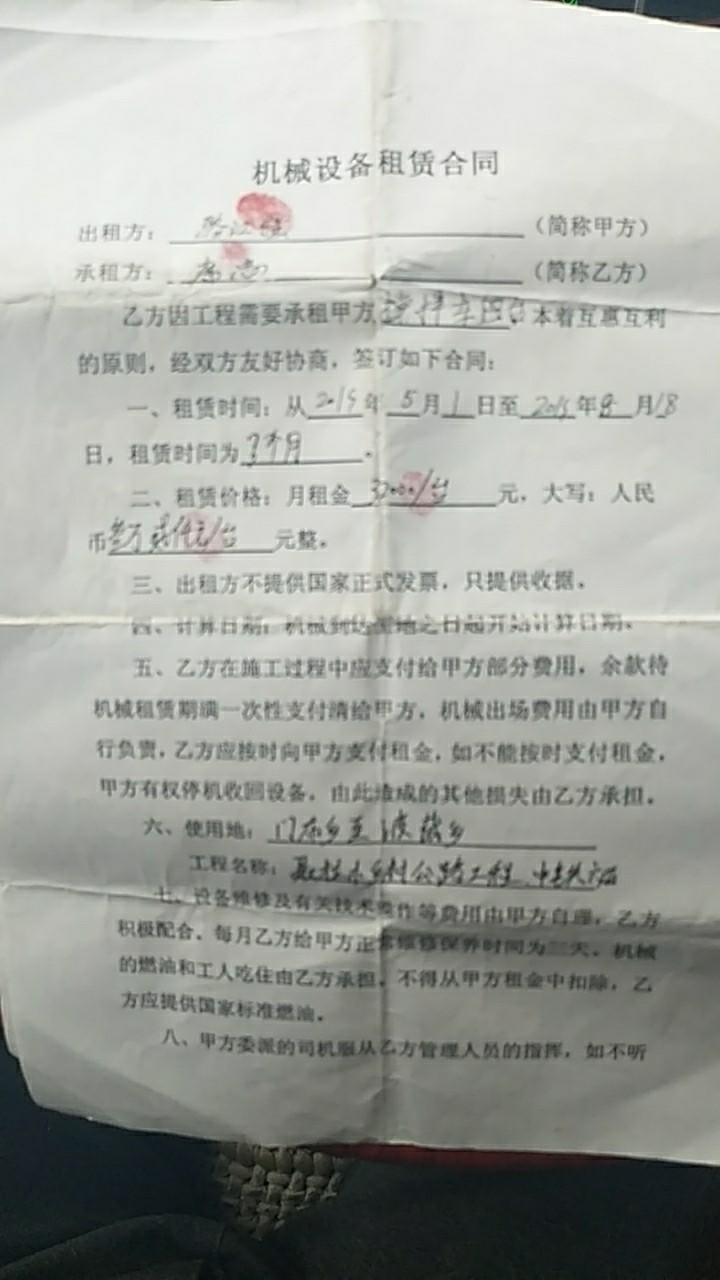 机械设备租赁合同
出租方： （简称甲方）
承租方： （简称乙方）
乙方因工程需要承租甲方搅拌车四台，本着互惠互利
的原则，经双方友好协商，签订如下合同：
一、租赁时间：从2015年5月1日至2015年8月18
日，租赁时间为3个月。
二、租赁价格：月租金32000/台元，大写：人民
币叁万贰仟元/台元整。
三、出租方不提供国家正式发票，只提供收据。
四、计算日期：机械到达工地之日起开始计算日期。
五、乙方在施工过程中应支付给甲方部分费用，余款待
机械租赁期满一次性支付清给甲方，机械出场费用由甲方自
行负责，乙方应按时向甲方支付租金，如不能按时支付租金，
甲方有权停机收回设备，由此造成的其他损失由乙方承担。
六、使用地：
工程名称：乡村公路工程
七、设备维修及有关技术操作等费用由甲方自理，乙方
积极配合。每月乙方给甲方正常维修保养时间为三天，机械
的燃油和工人吃住由乙方承担，不得从甲方租金中扣除，乙
方应提供国家标准燃油。
八、甲方委派的司机服从乙方管理人员的指挥，如不听